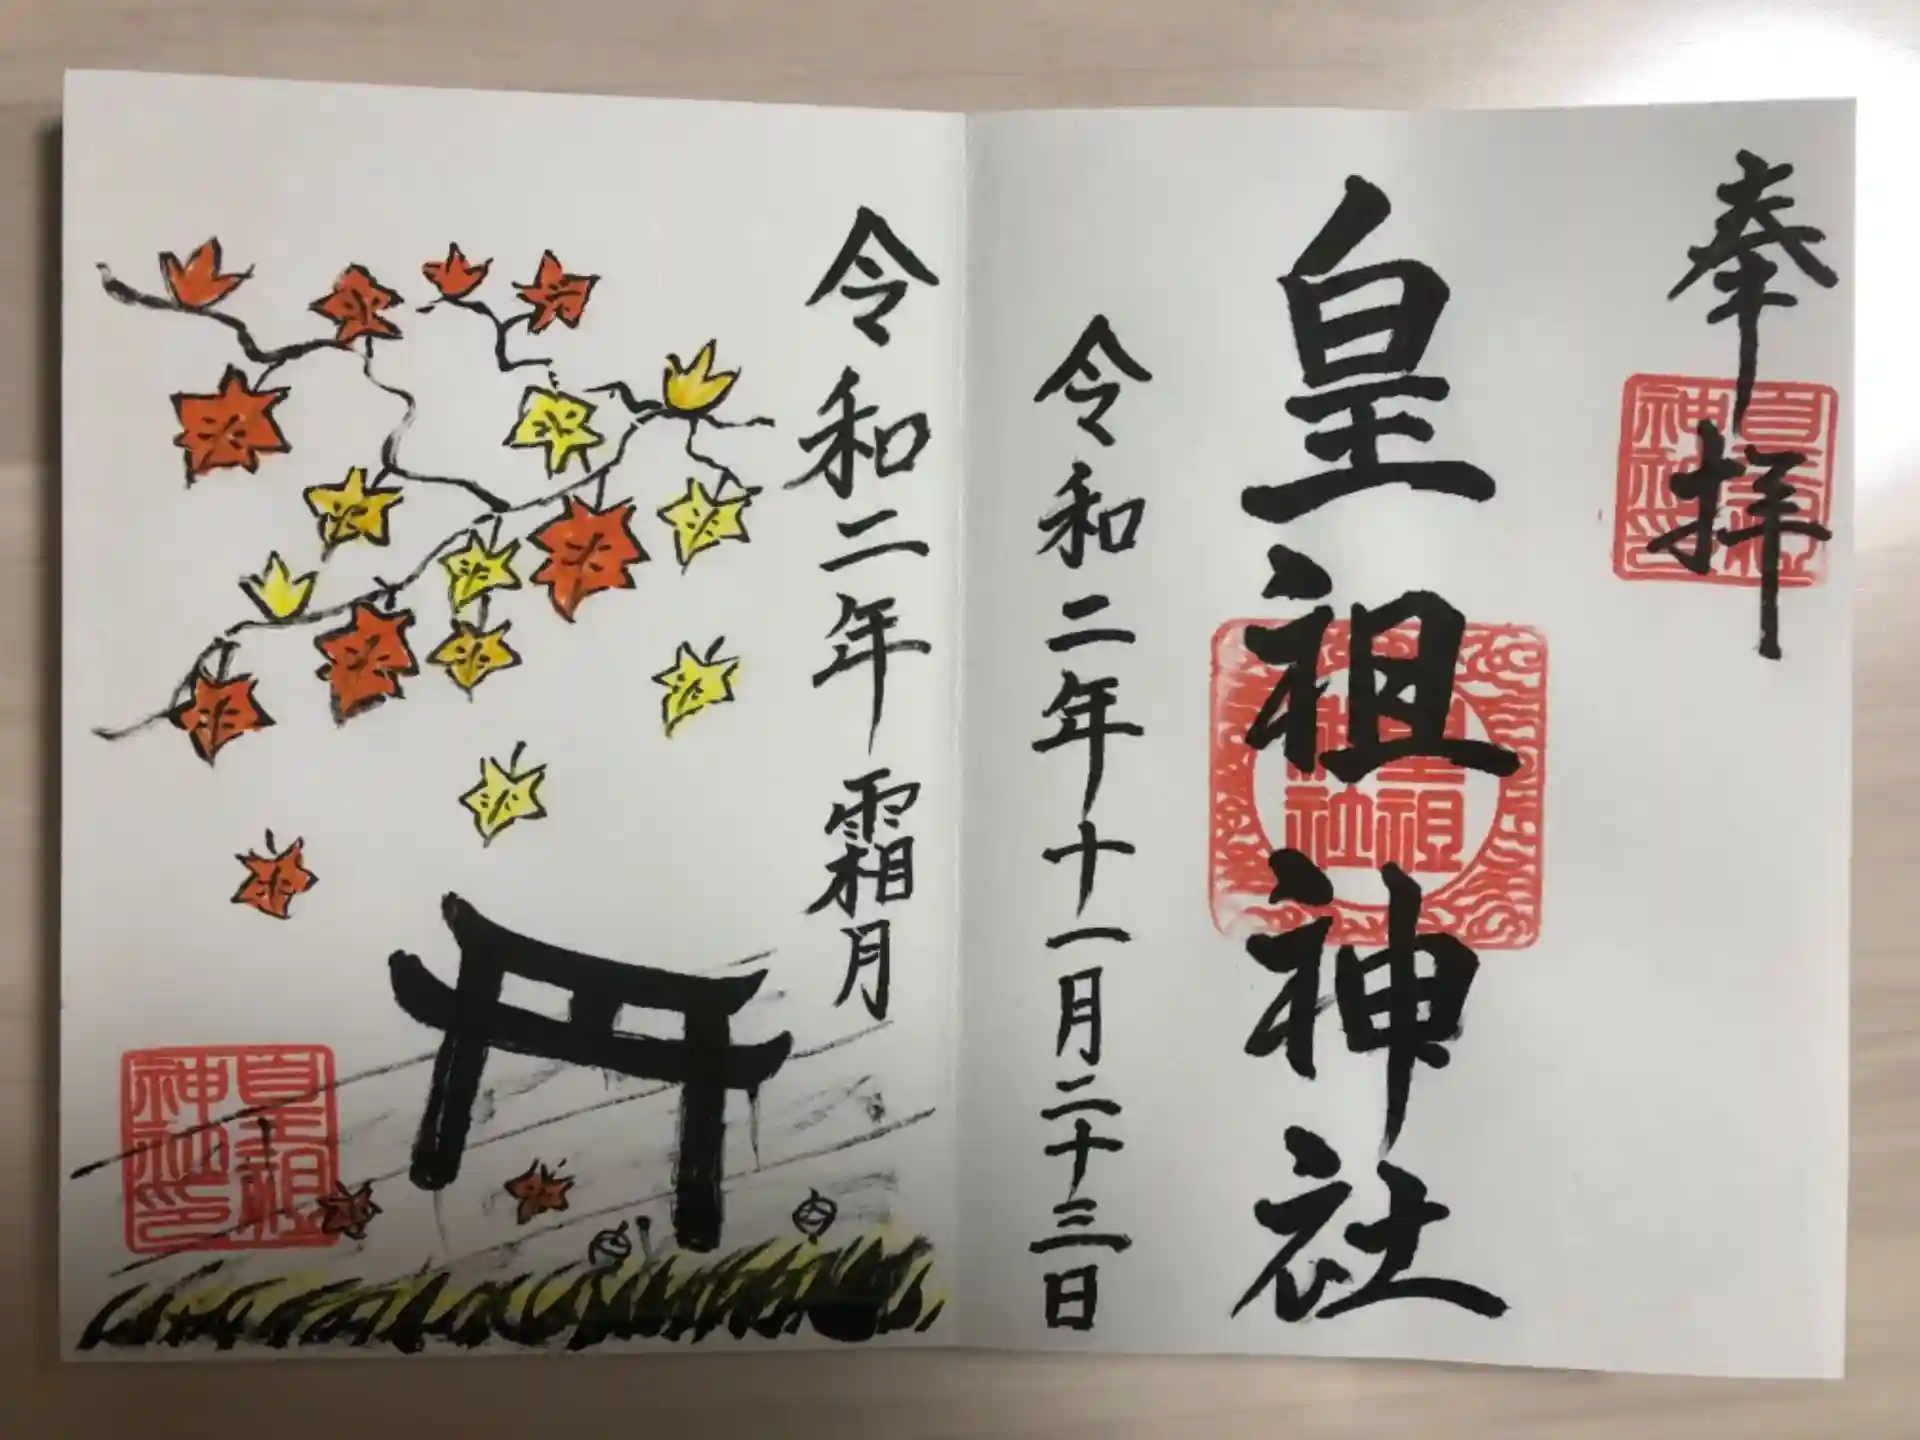 奉拝
皇祖神社
令和二年十一月二十三日
令和二年 霜月
皇祖
神社
皇祖
神社印